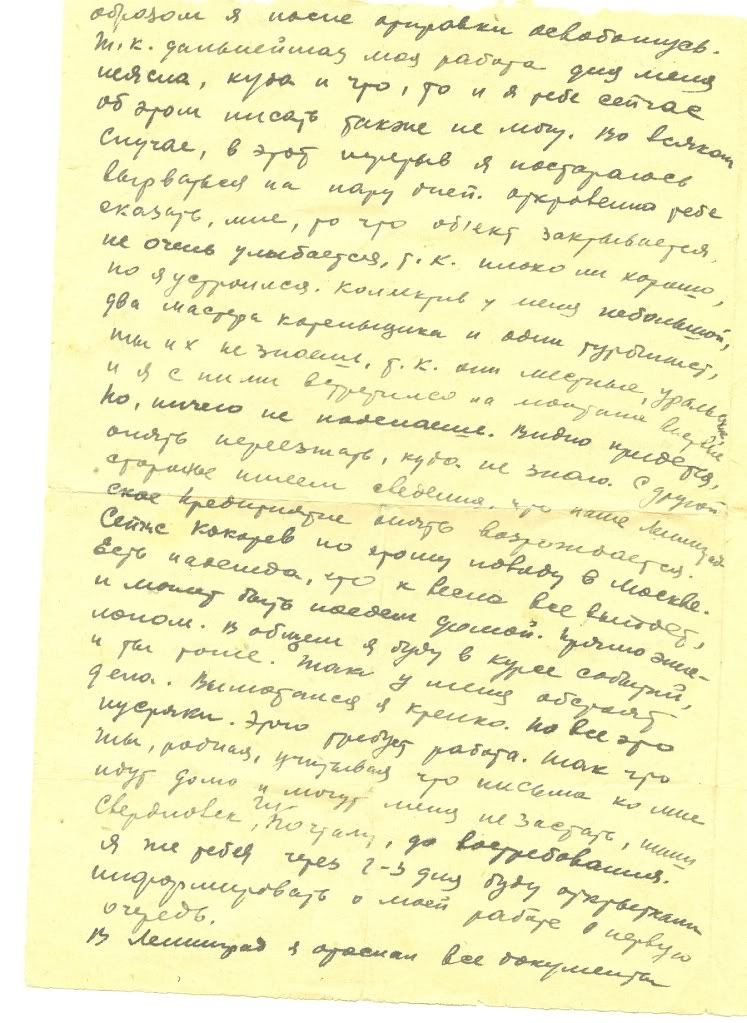 образом я после отправки освобожусь.
Т.к. дальнейшая моя работа для меня
неясна, куда и что, то и я тебе сейчас
об этом писать также не могу. Во всяком
случае, в этот перерыв я постараюсь
вырваться на пару дней. Откровенно тебе
сказать, мне, то что об'ект закрывается,
не очень улыбается, т.к. плохо ли хорошо,
но я устроился. Коллектив у меня небольшой,
два мастера котельщика и один турбинист,
ты их не знаешь, т.к. они местные,
и я с ними встретился на монтаже
Но, ничего не поделаешь. Видно придется,
опять переезжать, куда не знаю. С другой
стороны имеем сведения, что наше Ленинград
ское предприятие опять возрождается.
Сейчас Кокорев по этому поводу в Москве.
Есть надежда, что к весне все выйдет,
и может быть поедем домой. Прямо эше-
лоном. В общем я буду в курсе событий,
и ты тоже. Так у меня обстоят
дела. Вымотался я крепко. Но все это
пустяки. Этого требует работа. Так что
ты, родная, учитывая что письма ко мне
идут долго и могут меня не застать, пиши
Свердловск, Почтамт, до востребования.
Я же тебя через 2-3 дня буду открытками
информировать о моей работе в первую
очередь.
В Ленинград я отослал все документы